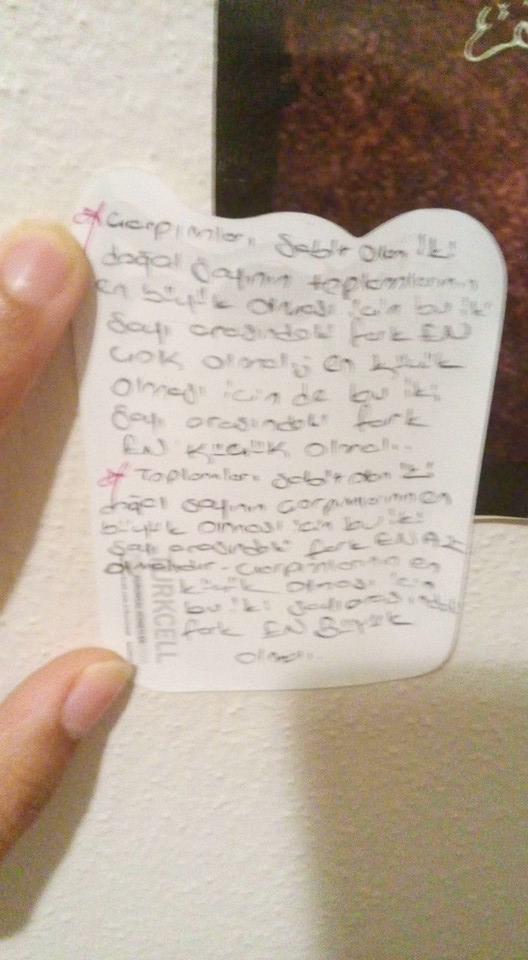 Çarpımları sabit olan iki
doğal sayının toplamlarının
en büyük olması için bu iki
sayı arasındaki fark EN
ÇOK olmalı; en küçük
olması için de bu iki
sayı arasındaki fark
EN KÜÇÜK olmalı..
Toplamları sabit olan 2
doğal sayının çarpımlarının en
büyük olması için bu iki
sayı arasındaki fark EN AZ
olmalıdır. Çarpımlarının en
küçük olması için
bu iki sayı arasındaki
fark EN BÜYÜK
olmalı..
TURKCELL